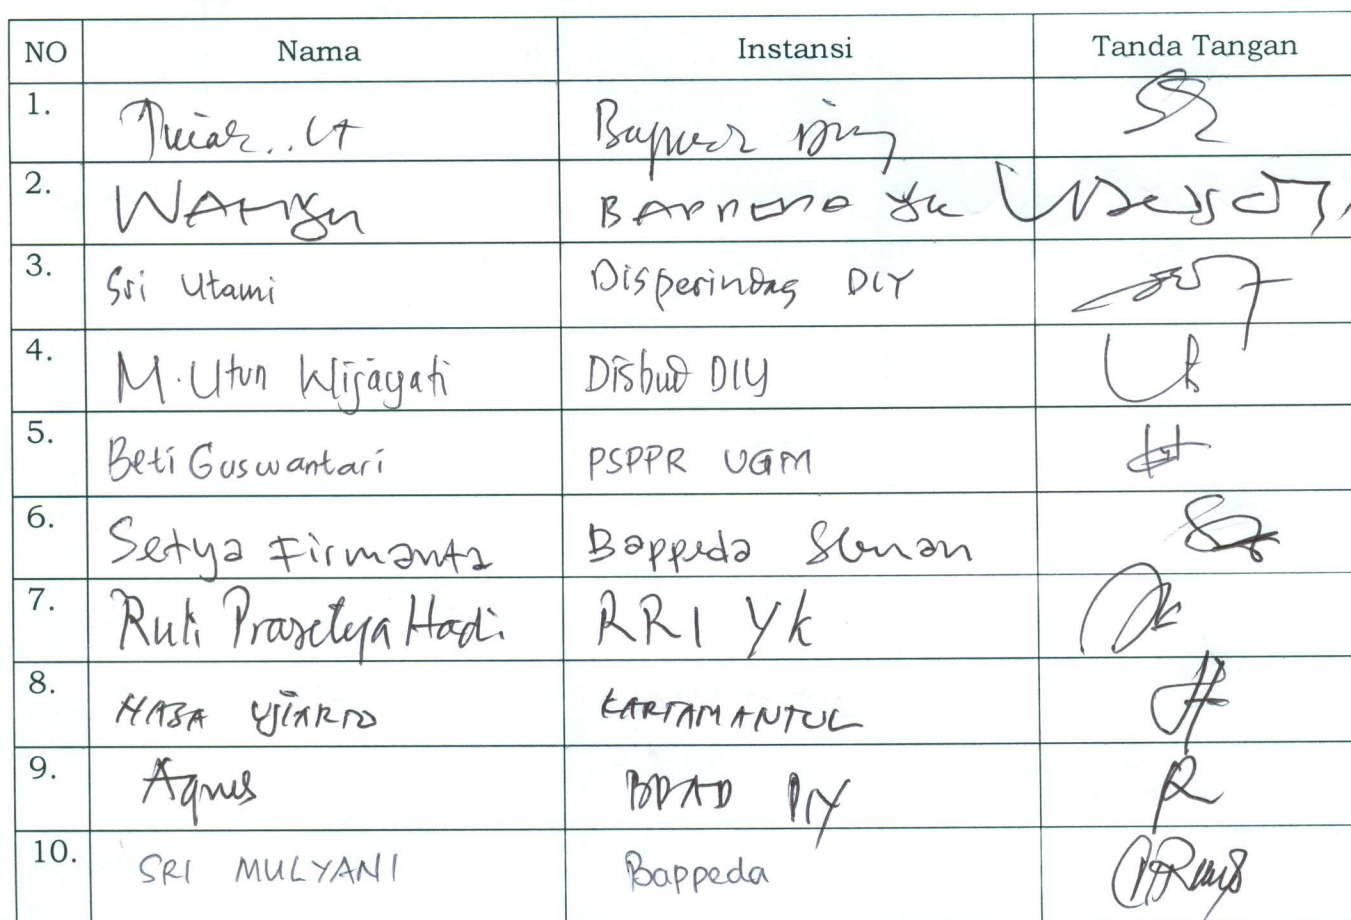 NO Nama Instansi Tanda Tangan
1.
2. Wahyu Bappeda YK
3. Sri Utami Disperindag DIY
4. M. Utun Wijayati Disbud DIY
5. Beti Guswantari PSPPR UGM
6. Setya Firmanta Bappeda Sleman
7. Ruli Prasetya Hadi RRI YK
8. KARTAMANTUL
9. Agnes DIY
10. SRI MULYANI Bappeda